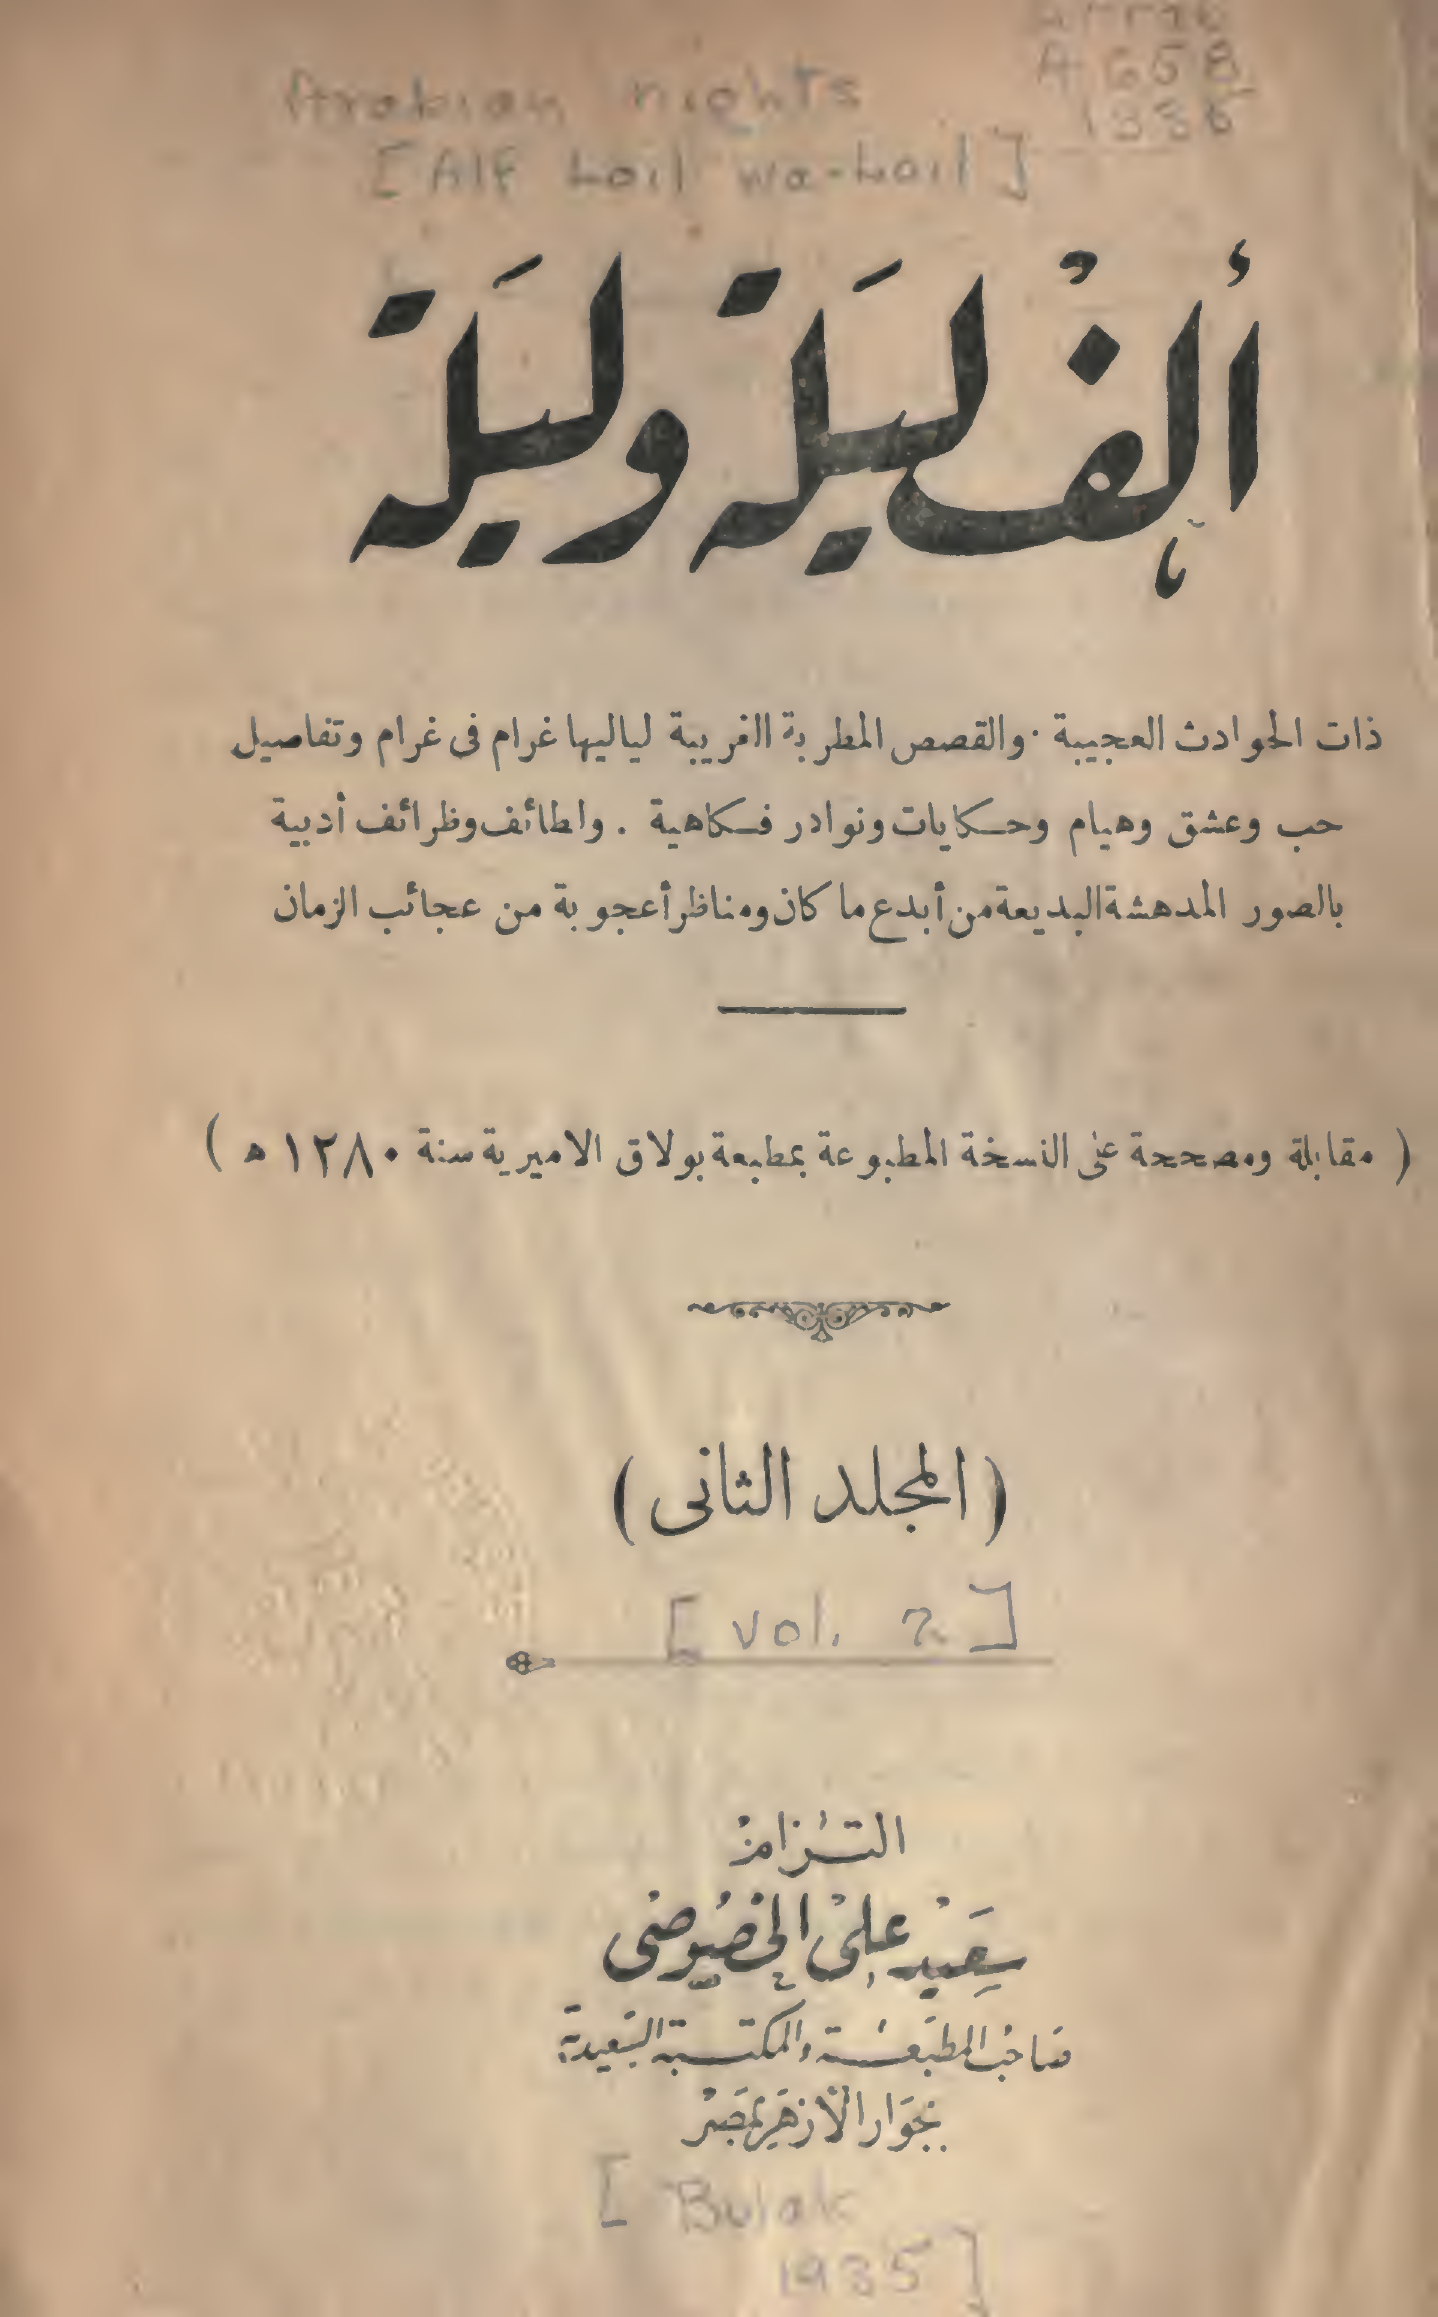 Arab
A 658
1935
Arabian nights
[Alf Lail wa-Lail]
ألف ليلة وليلة
ذات الحوادث العجيبة . والقصص المطربة الغريبة لياليها غرام فى غرام وتفاصيل
حب وعشق وهيام وحكايات ونوادر فكاهية . ولطائف وظرائف أدبية
بالصور المدهشة البديعة من أبدع ما كان ومناظر أعجوبة من عجائب الزمان
( مقابلة ومصححة على النسخة المطبوعة بمطبعة بولاق الاميرية سنة ١٢٨٠ ه )
( المجلد الثانى )
[ vol. 2 ]
التزام
سعيد على الخصوصى
صاحب المطبعة والمكتبة السعيدية
بجوار الأزهر بمصر
[ Bulak
1935 ]